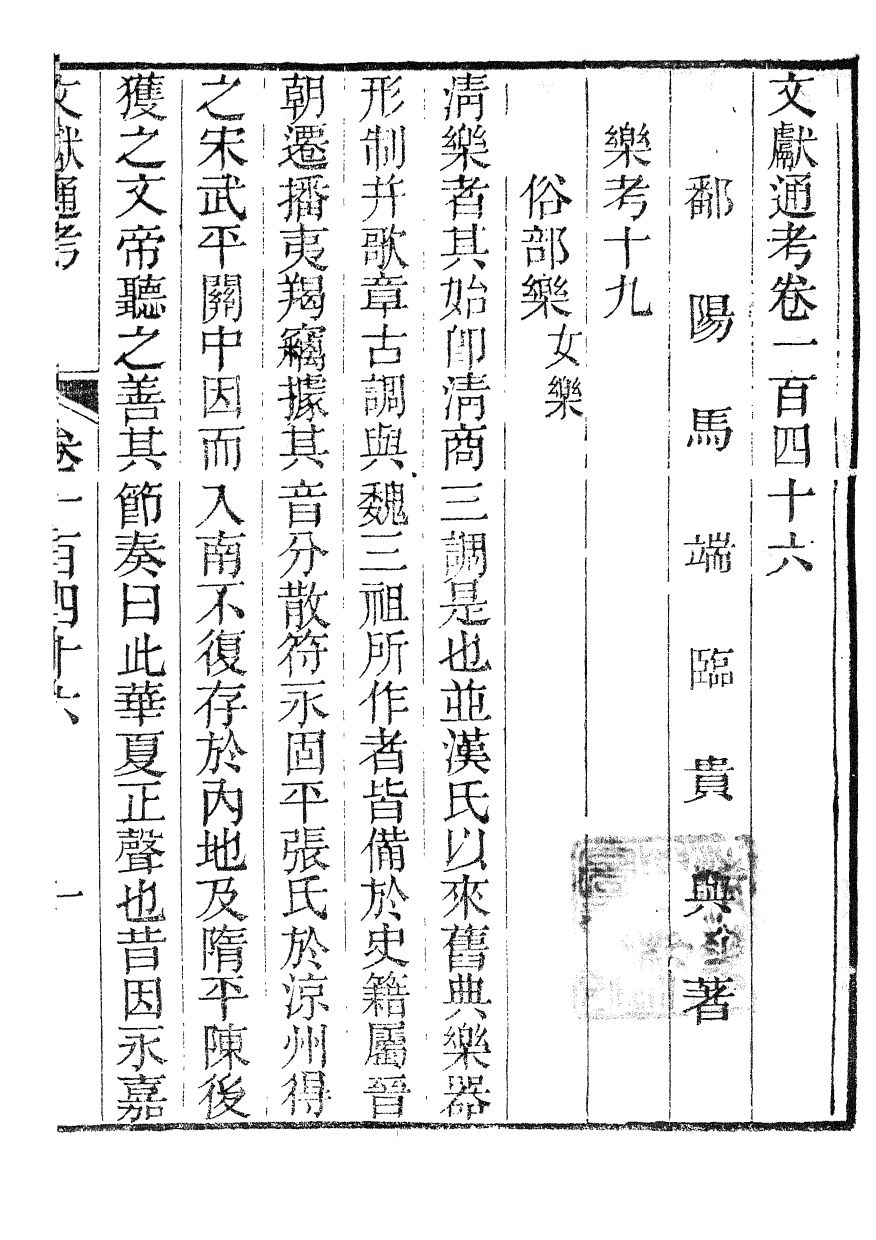 文獻通考卷一百四十六
鄱陽馬端臨貴與著
樂考十九
俗部樂女樂
清樂者其始卽清商三調是也並漢氏以來舊典樂器
形制幷歌章古調與魏三祖所作者皆備於史籍屬晉
朝遷播夷羯竊據其音分散苻永固平張氏於涼州得
之宋武平關中因而入南不復存於內地及隋平陳後
獲之文帝聽之善其節奏曰此華夏正聲也昔因永嘉
文獻通考 卷一百四十六 一